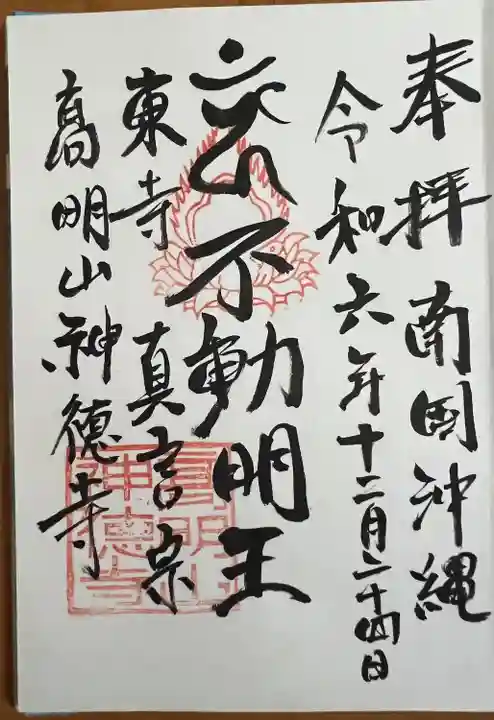 奉拝 南国沖縄
令和六年十二月二十四日
不動明王
東寺真言宗
高明山神徳寺
高明山
神徳寺